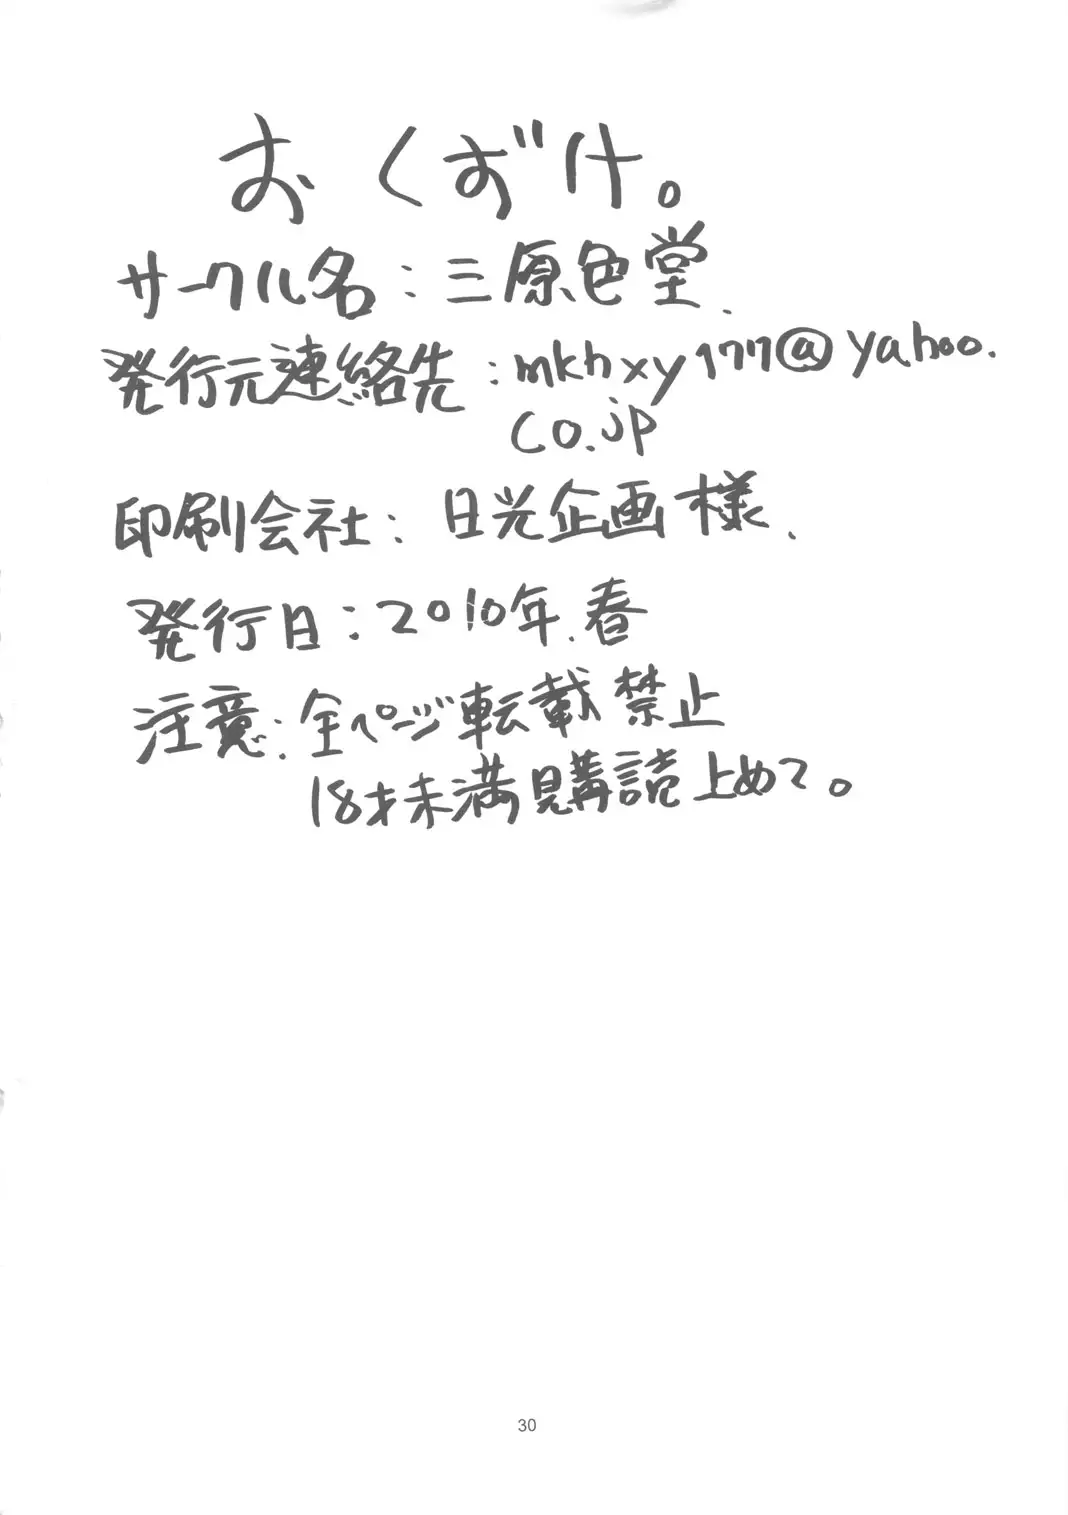 おくずけ。
サークル名：三原色堂.
発行元連絡先：mkhxy177@yahoo.
co.jp
印刷会社：日光企画様.
発行日：2010年.春
注意：全ページ転載禁止
18才未満購読止めて。
30